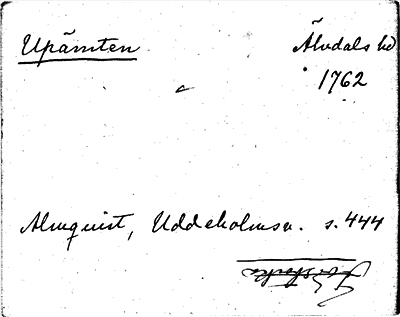 Upämten Älvdals hd
1762
Almquist, Uddeholmsv. s. 444